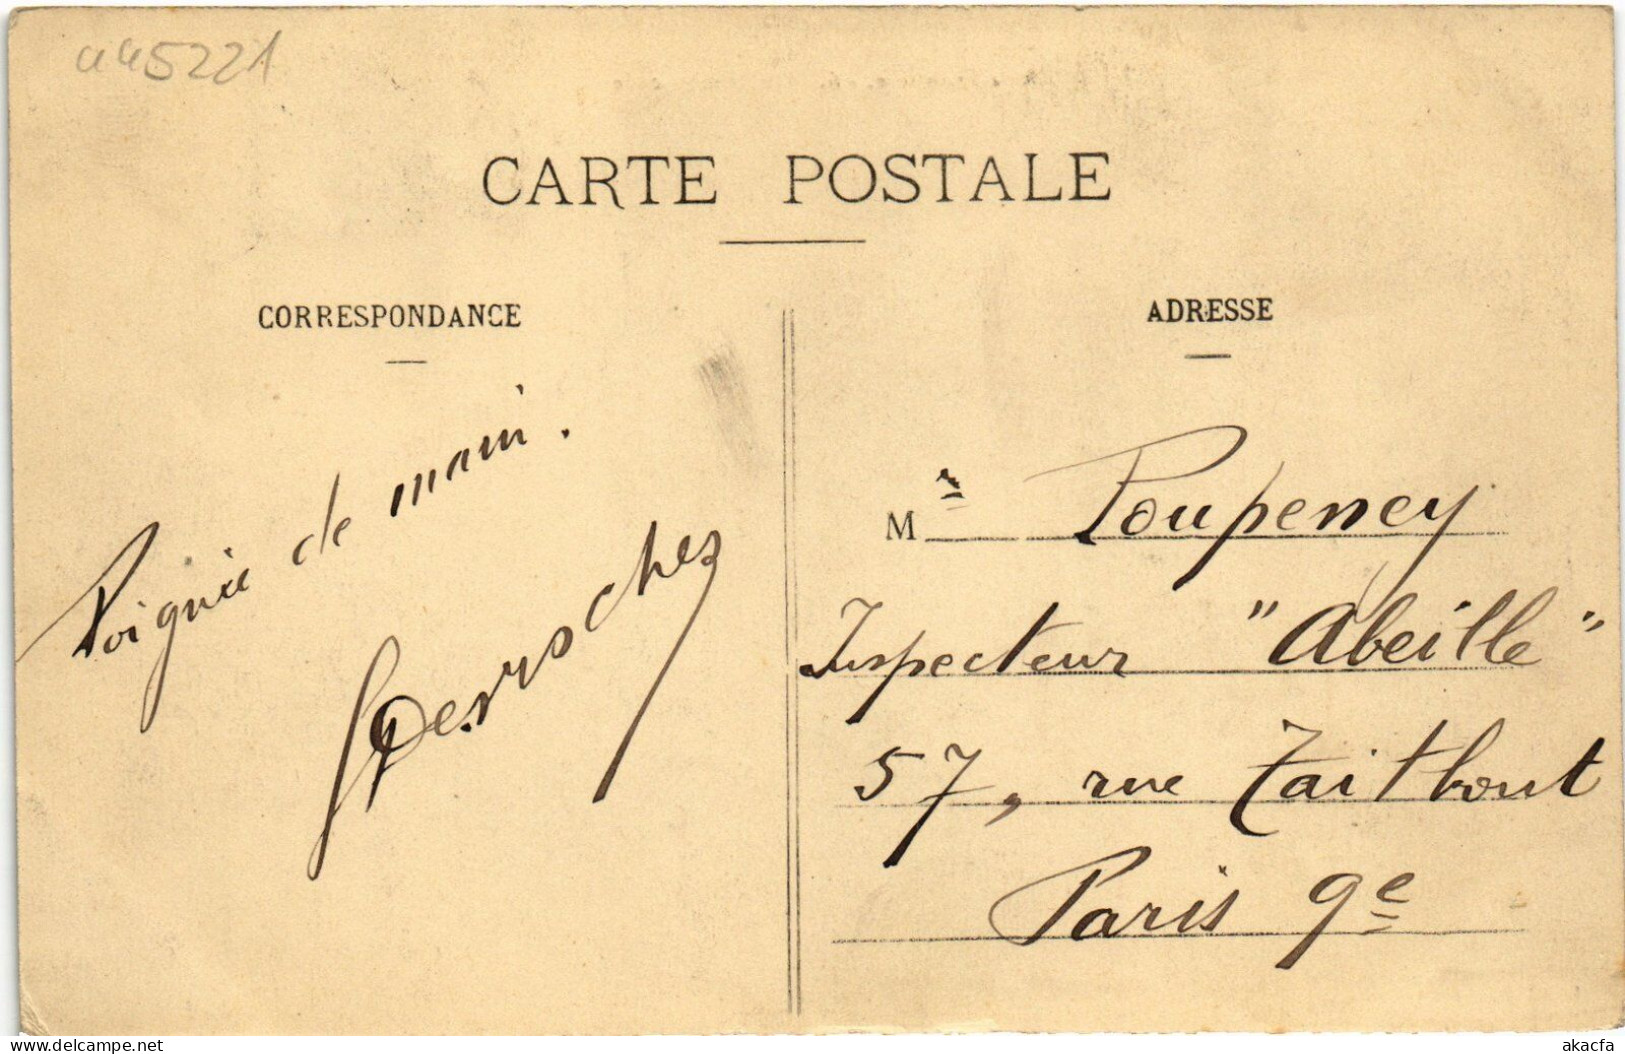 a45221
CARTE POSTALE
CORRESPONDANCE
Poignée de main.
ADRESSE
Mr Poupeney
Inspecteur "Abeille"
57, rue Taitbout
Paris 9e
www.delcampe.net
akacfa